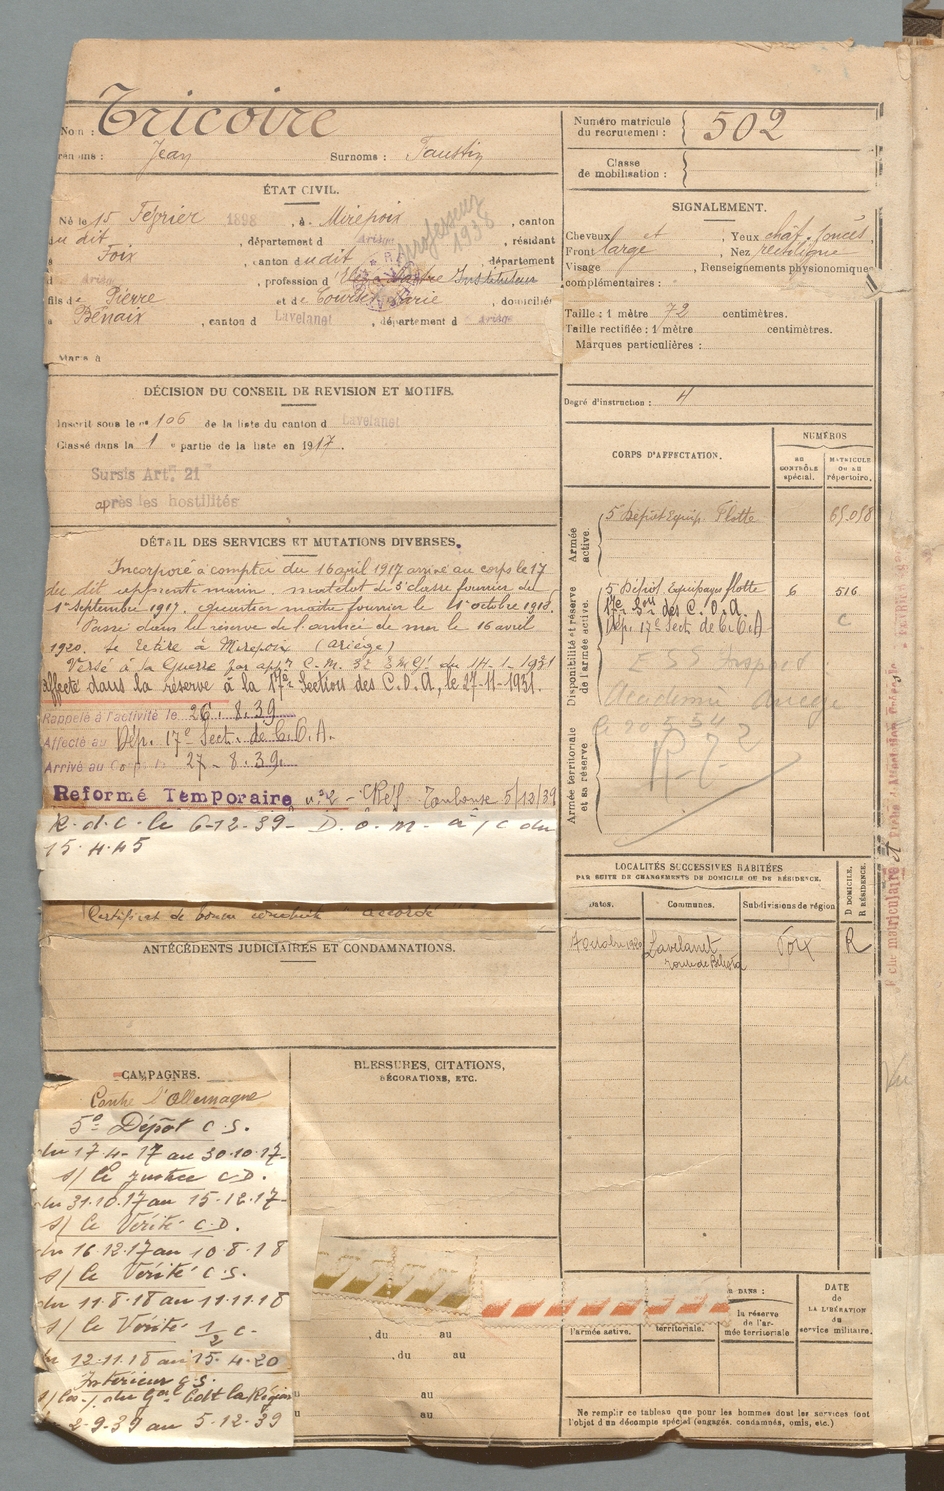 Nom : Tricoire
Prénoms : Jean Surnoms : Faustin
ÉTAT CIVIL.
Né le 15 Février 1898, à Mirepoix, canton
du dit, département d Ariège, résidant
à Foix, canton dudit, département
d Ariège, profession d Instituteur
professeur
1938
fils de Pierre et de Marie, domiciliés
à Bénaix, canton d Lavelanet, département d Ariège
Marié à
DÉCISION DU CONSEIL DE REVISION ET MOTIFS.
Inscrit sous le n° 106 de la liste du canton d Lavelanet
Classé dans la 1e partie de la liste en 1917.
Sursis Art. 21
après les hostilités
DÉTAIL DES SERVICES ET MUTATIONS DIVERSES.
Incorporé à compter du 16 avril 1917 arrivé au corps le 17
du dit apprenti marin. matelot de 3e classe fourrier du
1er Septembre 1917. quartier maître fourrier le 11 octobre 1918.
Passé dans la réserve de l'armée de mer le 16 avril
1920. Se retire à Mirepoix (Ariège)
Versé à la Guerre par appon C.M. 32 EMGI du 14-1-1931
Affecté dans la réserve à la 17e Section des C.O.A, le 27-11-1931.
Rappelé à l'activité le 26.8.39
Affecté au Dép. 17e Sect. de C.O.A.
Arrivé au Corps le 27-8.39
Reformé Temporaire n°2 - Toulouse 5/12/39
R.d.C. le 6-12-39 - D.O.M. à/c du
15.4.45
Certificat de bonne conduite accordé
ANTÉCÉDENTS JUDICIAIRES ET CONDAMNATIONS.
CAMPAGNES.
Contre l'Allemagne
5e Dépôt C.S.
du 17-4-17 au 30-10-17-
s/ le Justice C.D.
du 31.10.17 au 15-12-17-
s/ le Vérité C.D.
du 16-12-17 au 10-8-18
s/ le Vérité C.S.
du 11-8-18 au 11-11-18
s/ le Vérité 1/2 C-
du 12-11-18 au 15-4-20
Intérieur C.S.
du Gal Cdt la Région
2-9-39 au 5-12-39
BLESSURES, CITATIONS,
DÉCORATIONS, ETC.
, du au
, du au
au
au
Numéro matricule
du recrutement : 502
Classe
de mobilisation :
SIGNALEMENT.
Cheveux et, Yeux chât. foncés,
Front large, Nez rectiligne
Visage, Renseignements physionomiques
complémentaires :
Taille : 1 mètre 72 centimètres.
Taille rectifiée : 1 mètre centimètres.
Marques particulières :
Degré d'instruction : 4
CORPS D'AFFECTATION.
NUMÉROS
AU CONTRÔLE spécial.
MATRICULE OU AU répertoire.
Armée active.
5 Dépôt Equip. Flotte 65.058
Disponibilité et réserve de l'armée active.
5 Dépôt Equipages flotte 6 516
17e Son des C.O.A.
Dép. 17e Sect. de C.O.A C
Académie Ariège
le 20.5.54
Armée territoriale et sa réserve
LOCALITÉS SUCCESSIVES HABITÉES
PAR SUITE DE CHANGEMENTS DE DOMICILE OU DE RÉSIDENCE.
Dates. Communes. Subdivisions de région D DOMICILE. R RÉSIDENCE.
Lavelanet Foix R
DANS :
l'armée active. territoriale. la réserve de l'armée territoriale
DATE
de
LA LIBÉRATION
du
service militaire.
Ne remplir ce tableau que pour les hommes dont les services font
l'objet d'un décompte spécial (engagés, condamnés, omis, etc.)